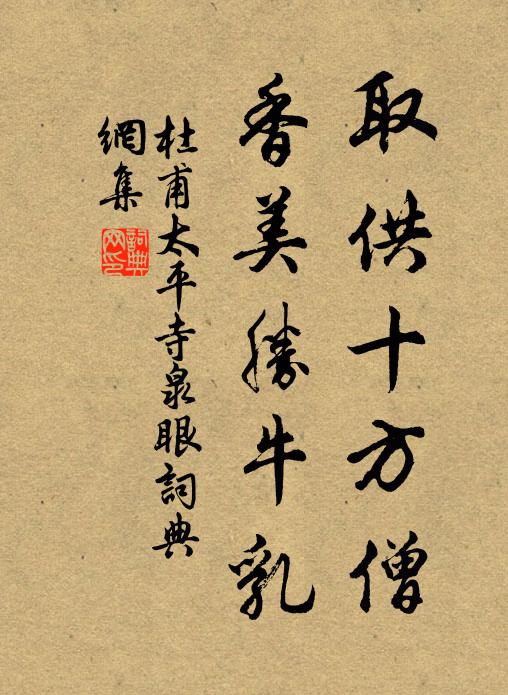 取供十方僧
香美勝牛乳
杜甫太平寺泉眼詞典
網集
詞典
网印